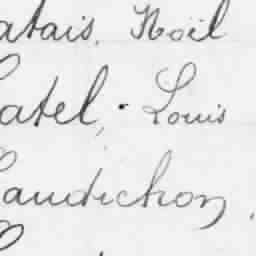 atais. Noël
Catel, Louis
Caudichon,